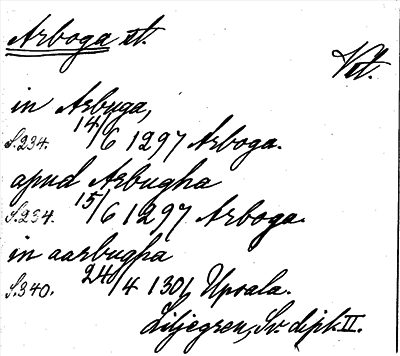 Arboga st.
Vtl.
in Arbuga,
S.234. 14/6 1297 Arboga.
apud Arbugha
S.234. 15/6 1297 Arboga.
in aarbugha
S.340. 24/4 1301 Upsala.
Liljegren, Sv. dipl. II.